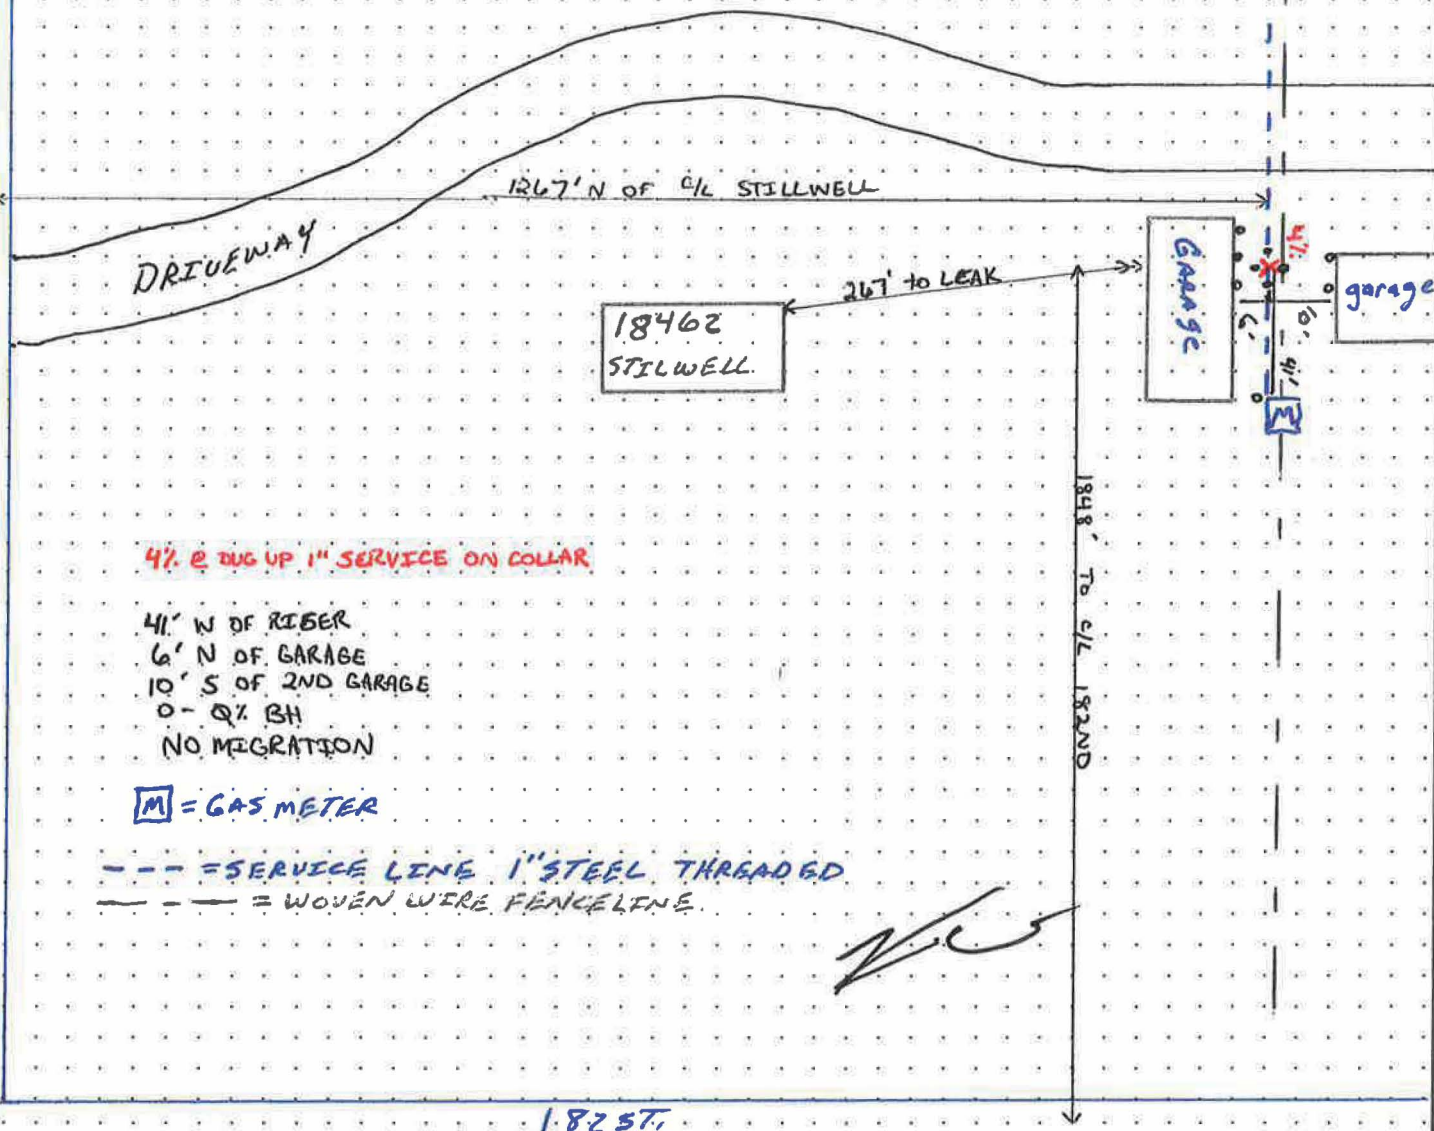 1267' N OF C/L STILLWELL
DRIVEWAY
GARAGE
4%
garage
267' to LEAK
18462
STILWELL
6'
10'
41'
M
1848' TO C/L 182ND
4% @ DUG UP 1" SERVICE ON COLLAR
41' W OF RISER
6' N OF GARAGE
10' S OF 2ND GARAGE
0 - 0% BH
NO MIGRATION
M = GAS METER
--- = SERVICE LINE 1" STEEL THREADED
— - — = WOVEN WIRE FENCELINE
182 ST.